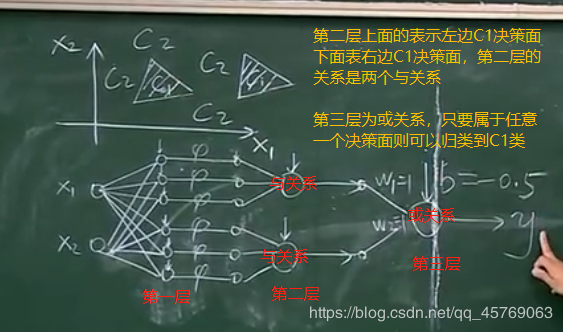 第二层上面的表示左边C1决策面
下面表右边C1决策面，第二层的
关系是两个与关系
第三层为或关系，只要属于任意
一个决策面则可以归类到C1类
X2
C2
C2
C1
C1
C2
X1
X1
X2
φ
φ
φ
φ
φ
φ
与关系
与关系
W1=1
b=-0.5
W2=1
或关系
y
第一层
第二层
https://blog.csdn.net/qq_45769063